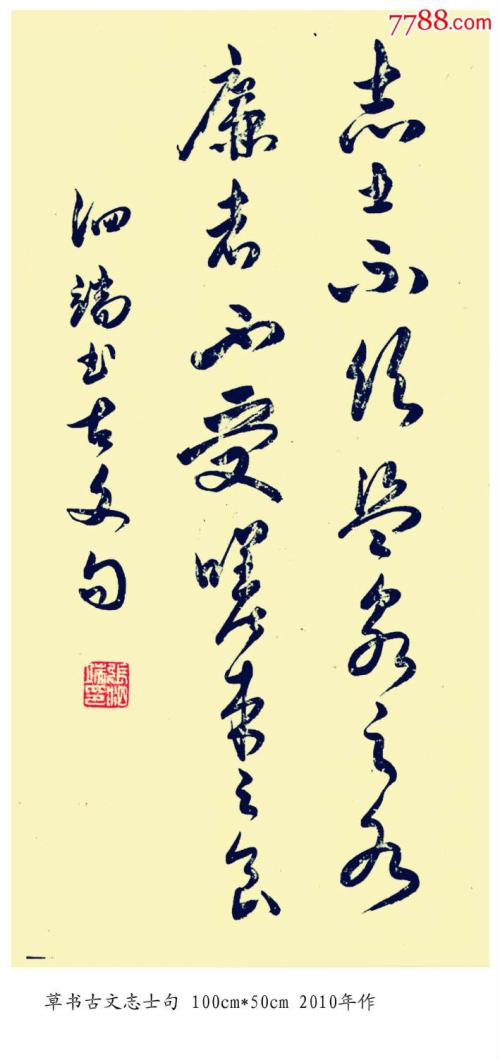 7788.com
志士不饮盗泉之水
廉者不受嗟来之食
泗端书古文句
草书古文志士句 100cm*50cm 2010年作